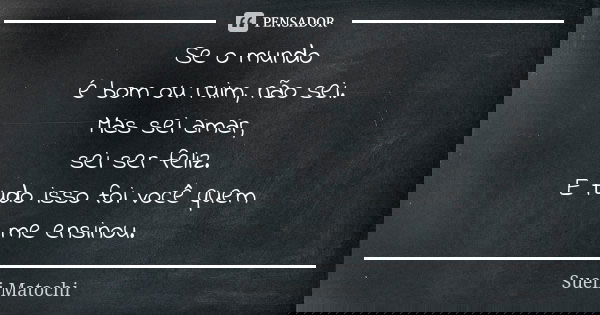 PENSADOR
Se o mundo
é bom ou ruim, não sei.
Mas sei amar,
sei ser feliz.
E tudo isso foi você quem
me ensinou.
Sueli Matochi